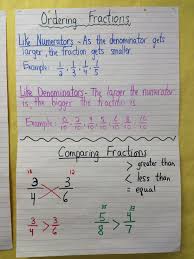 Ordering Fractions
Like Numerators - As the denominator gets
larger, the fraction gets smaller.
Example: 1/2, 1/3, 1/4, 1/5
Like Denominators - The larger the numerator
is, the bigger the fraction is.
Example:
Comparing Fractions
> greater than
< less than
= equal
18 12
3/4 3/6
3/4 > 3/6
5/8 > 4/7